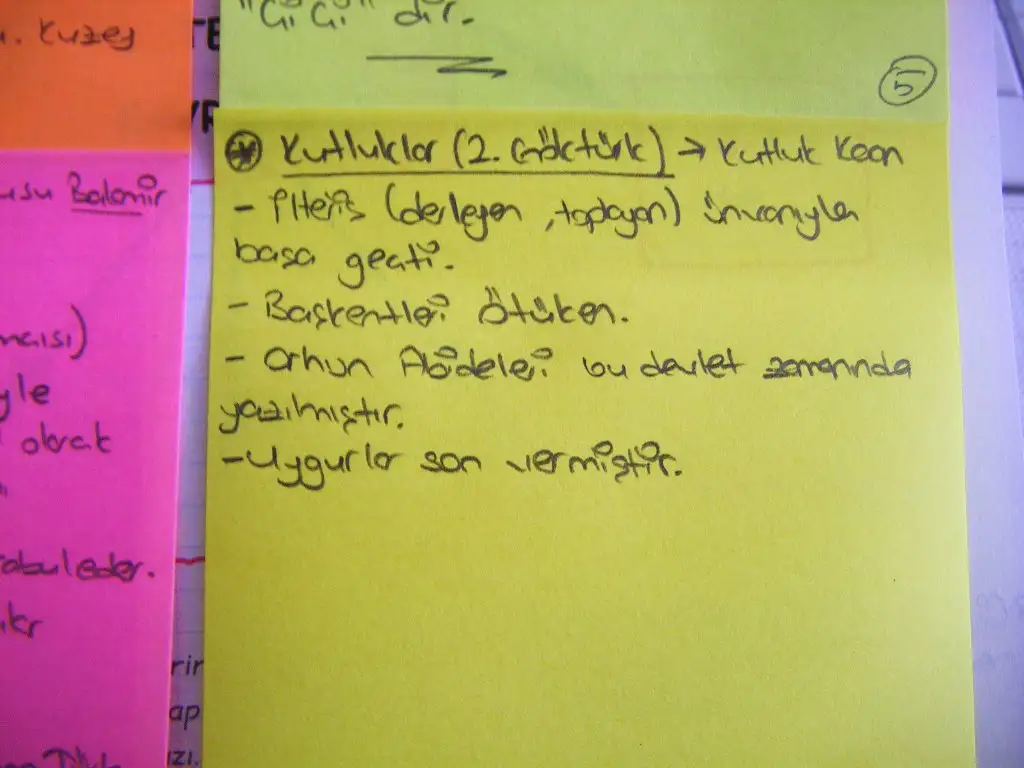 . Kuzey
"Gi Gi" dir.
5
Kutluklar (2. Göktürk) → Kutluk Kaan
- İlteriş (derleyen, toplayan) ünvanıyla
başa geçti.
- Başkentleri Ötüken.
- Orhun Abideleri bu devlet zamanında
yazılmıştır.
- Uygurlar son vermiştir.
usu Balamir
ması)
yle
olarak
"
abul eder.
ıkr
rir
ap
ızı.